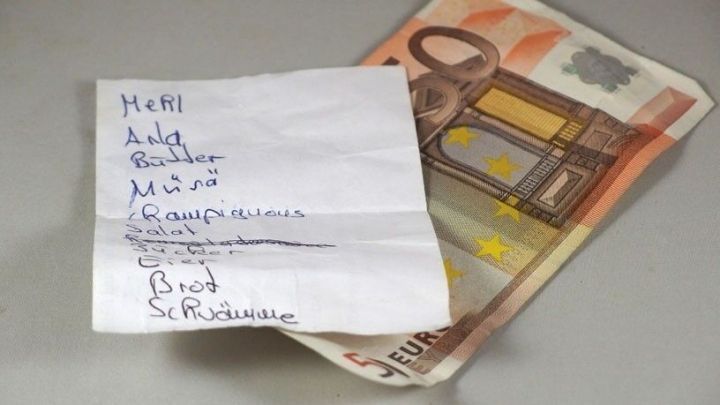 MeHl
Butter
Müsli
Champignons
Salat
Zucker
Eier
Brot
Schwämme
50
EURO